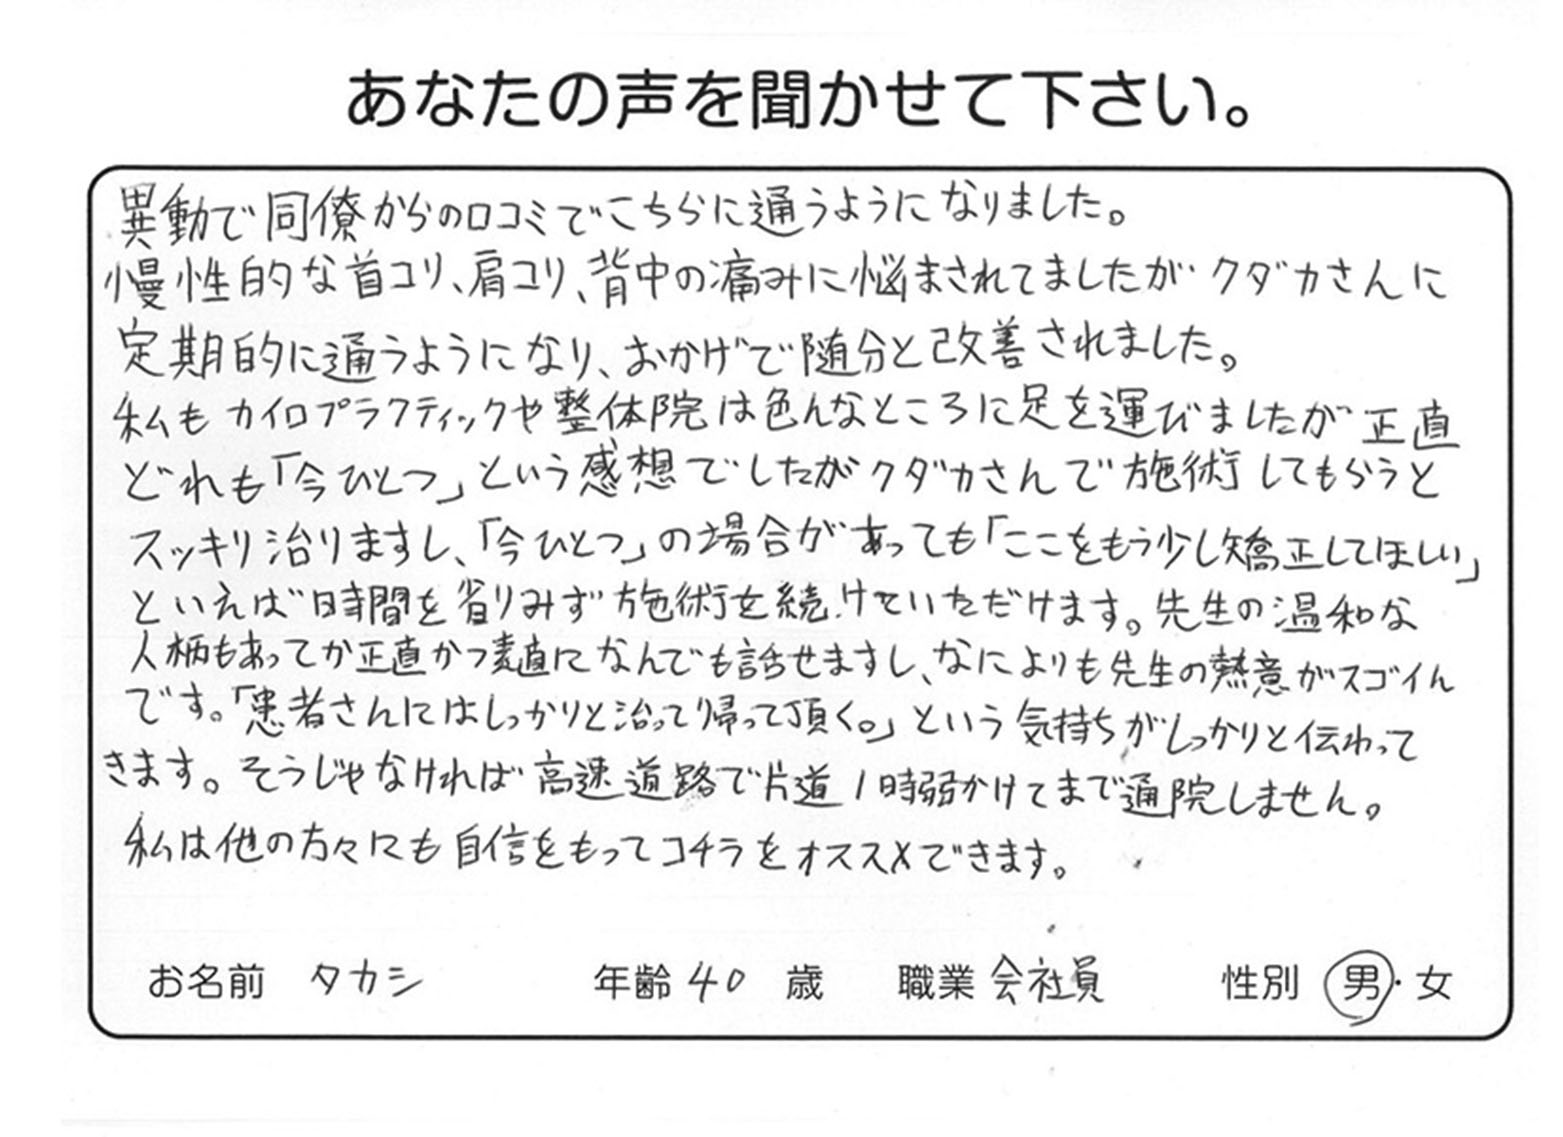 あなたの声を聞かせて下さい。
異動で同僚からの口コミでこちらに通うようになりました。
慢性的な首コリ、肩コリ、背中の痛みに悩まされてましたがクダカさんに
定期的に通うようになり、おかげで随分と改善されました。
私もカイロプラクティックや整体院は色んなところに足を運びましたが正直
どれも「今ひとつ」という感想でしたがクダカさんで施術してもらうと
スッキリ治りますし、「今ひとつ」の場合があっても「ここをもう少し矯正してほしい」
といえば時間を省りみず施術を続けていただけます。先生の温和な
人柄もあってか正直かつ素直になんでも話せますし、なによりも先生の熱意がスゴイん
です。「患者さんにはしっかりと治って帰って頂く。」という気持ちがしっかりと伝わって
きます。そうじゃなければ高速道路で片道1時弱かけてまで通院しません。
私は他の方々にも自信をもってコチラをオススメできます。
お名前 タカシ 年齢 40 歳 職業 会社員 性別 男・女